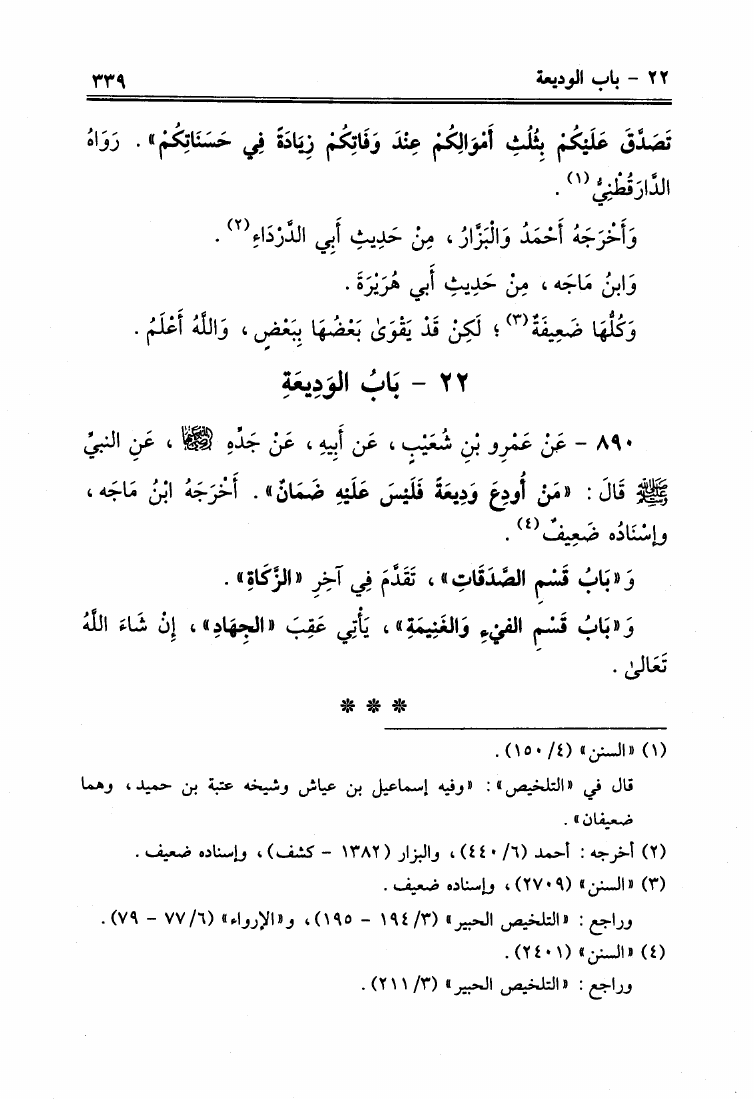 ٢٢ - باب الوديعة ٣٣٩
تَصَدَّقَ عَلَيْكُمْ بِثُلُثِ أَمْوَالِكُمْ عِنْدَ وَفَاتِكُمْ زِيَادَةً فِي حَسَنَاتِكُمْ» . رَوَاهُ
الدَّارَقُطْنِيُّ(١) .
وَأَخْرَجَهُ أَحْمَدُ وَالْبَزَّارُ ، مِنْ حَدِيثِ أَبِي الدَّرْدَاءِ(٢) .
وَابنُ مَاجَه ، مِنْ حَدِيثِ أَبي هُرَيْرَةَ .
وَكُلُّهَا ضَعِيفَةٌ(٣) ؛ لَكِنْ قَدْ يَقْوَىٰ بَعْضُهَا بِبَعْضٍ ، وَاللَّهُ أَعْلَمُ .
٢٢ - بَابُ الوَدِيعَةِ
٨٩٠ - عَنْ عَمْرِو بْنِ شُعَيْبٍ ، عَن أَبِيهِ ، عَنْ جَدِّهِ ، عَنِ النبيِّ
ﷺ قَالَ : «مَنْ أُودِعَ وَدِيعَةً فَلَيْسَ عَلَيْهِ ضَمَانٌ» . أَخْرَجَهُ ابْنُ مَاجَه ،
وإِسْنَادُه ضَعِيفٌ(٤) .
وَ«بَابُ قَسْمِ الصَّدَقَاتِ» ، تَقَدَّمَ فِي آخِرِ «الزَّكَاةِ» .
وَ«بَابُ قَسْمِ الفَيْءِ وَالغَنِيمَةِ» ، يَأْتِي عَقِبَ «الجِهَادِ» ، إِنْ شَاءَ اللَّهُ
تَعَالىٰ .
* * *
(١) «السنن» (٤/ ١٥٠) .
قال في «التلخيص» : «وفيه إسماعيل بن عياش وشيخه عتبة بن حميد ، وهما
ضعيفان» .
(٢) أخرجه : أحمد (٦/ ٤٤٠) ، والبزار (١٣٨٢ - كشف) ، وإسناده ضعيف .
(٣) «السنن» (٢٧٠٩) ، وإسناده ضعيف .
وراجع : «التلخيص الحبير» (٣/ ١٩٤ - ١٩٥) ، و«الإرواء» (٦/ ٧٧ - ٧٩) .
(٤) «السنن» (٢٤٠١) .
وراجع : «التلخيص الحبير» (٣/ ٢١١) .